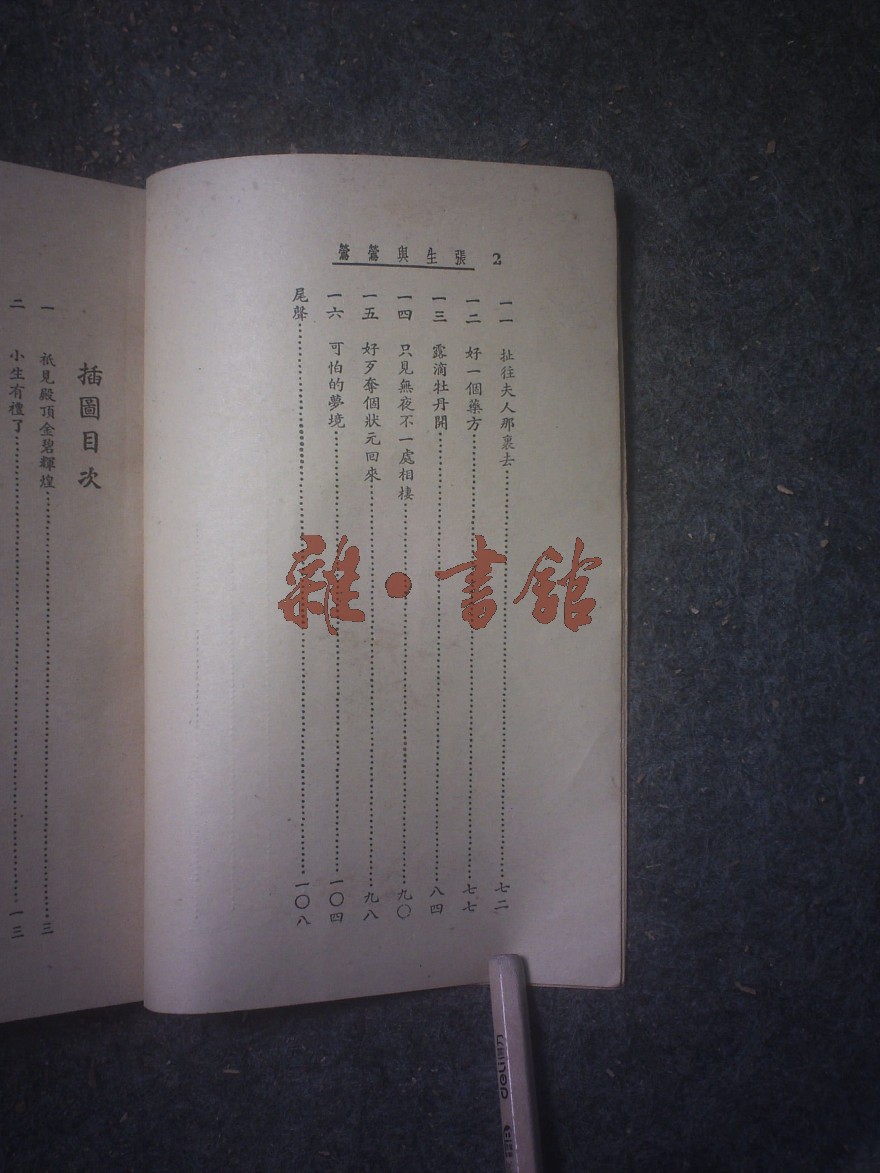 2 張生與鶯鶯
一一 扯往夫人那裏去……七二
一二 好一個藥方……七七
一三 露滴牡丹開……八四
一四 只見無夜不一處相棲……九〇
一五 好歹奪個狀元回來……九八
一六 可怕的夢境……一〇四
尾聲……一〇八
插圖目次
一 祇見殿頂金碧輝煌……三
二 小生有禮了……一三
雜·書館
deli得力